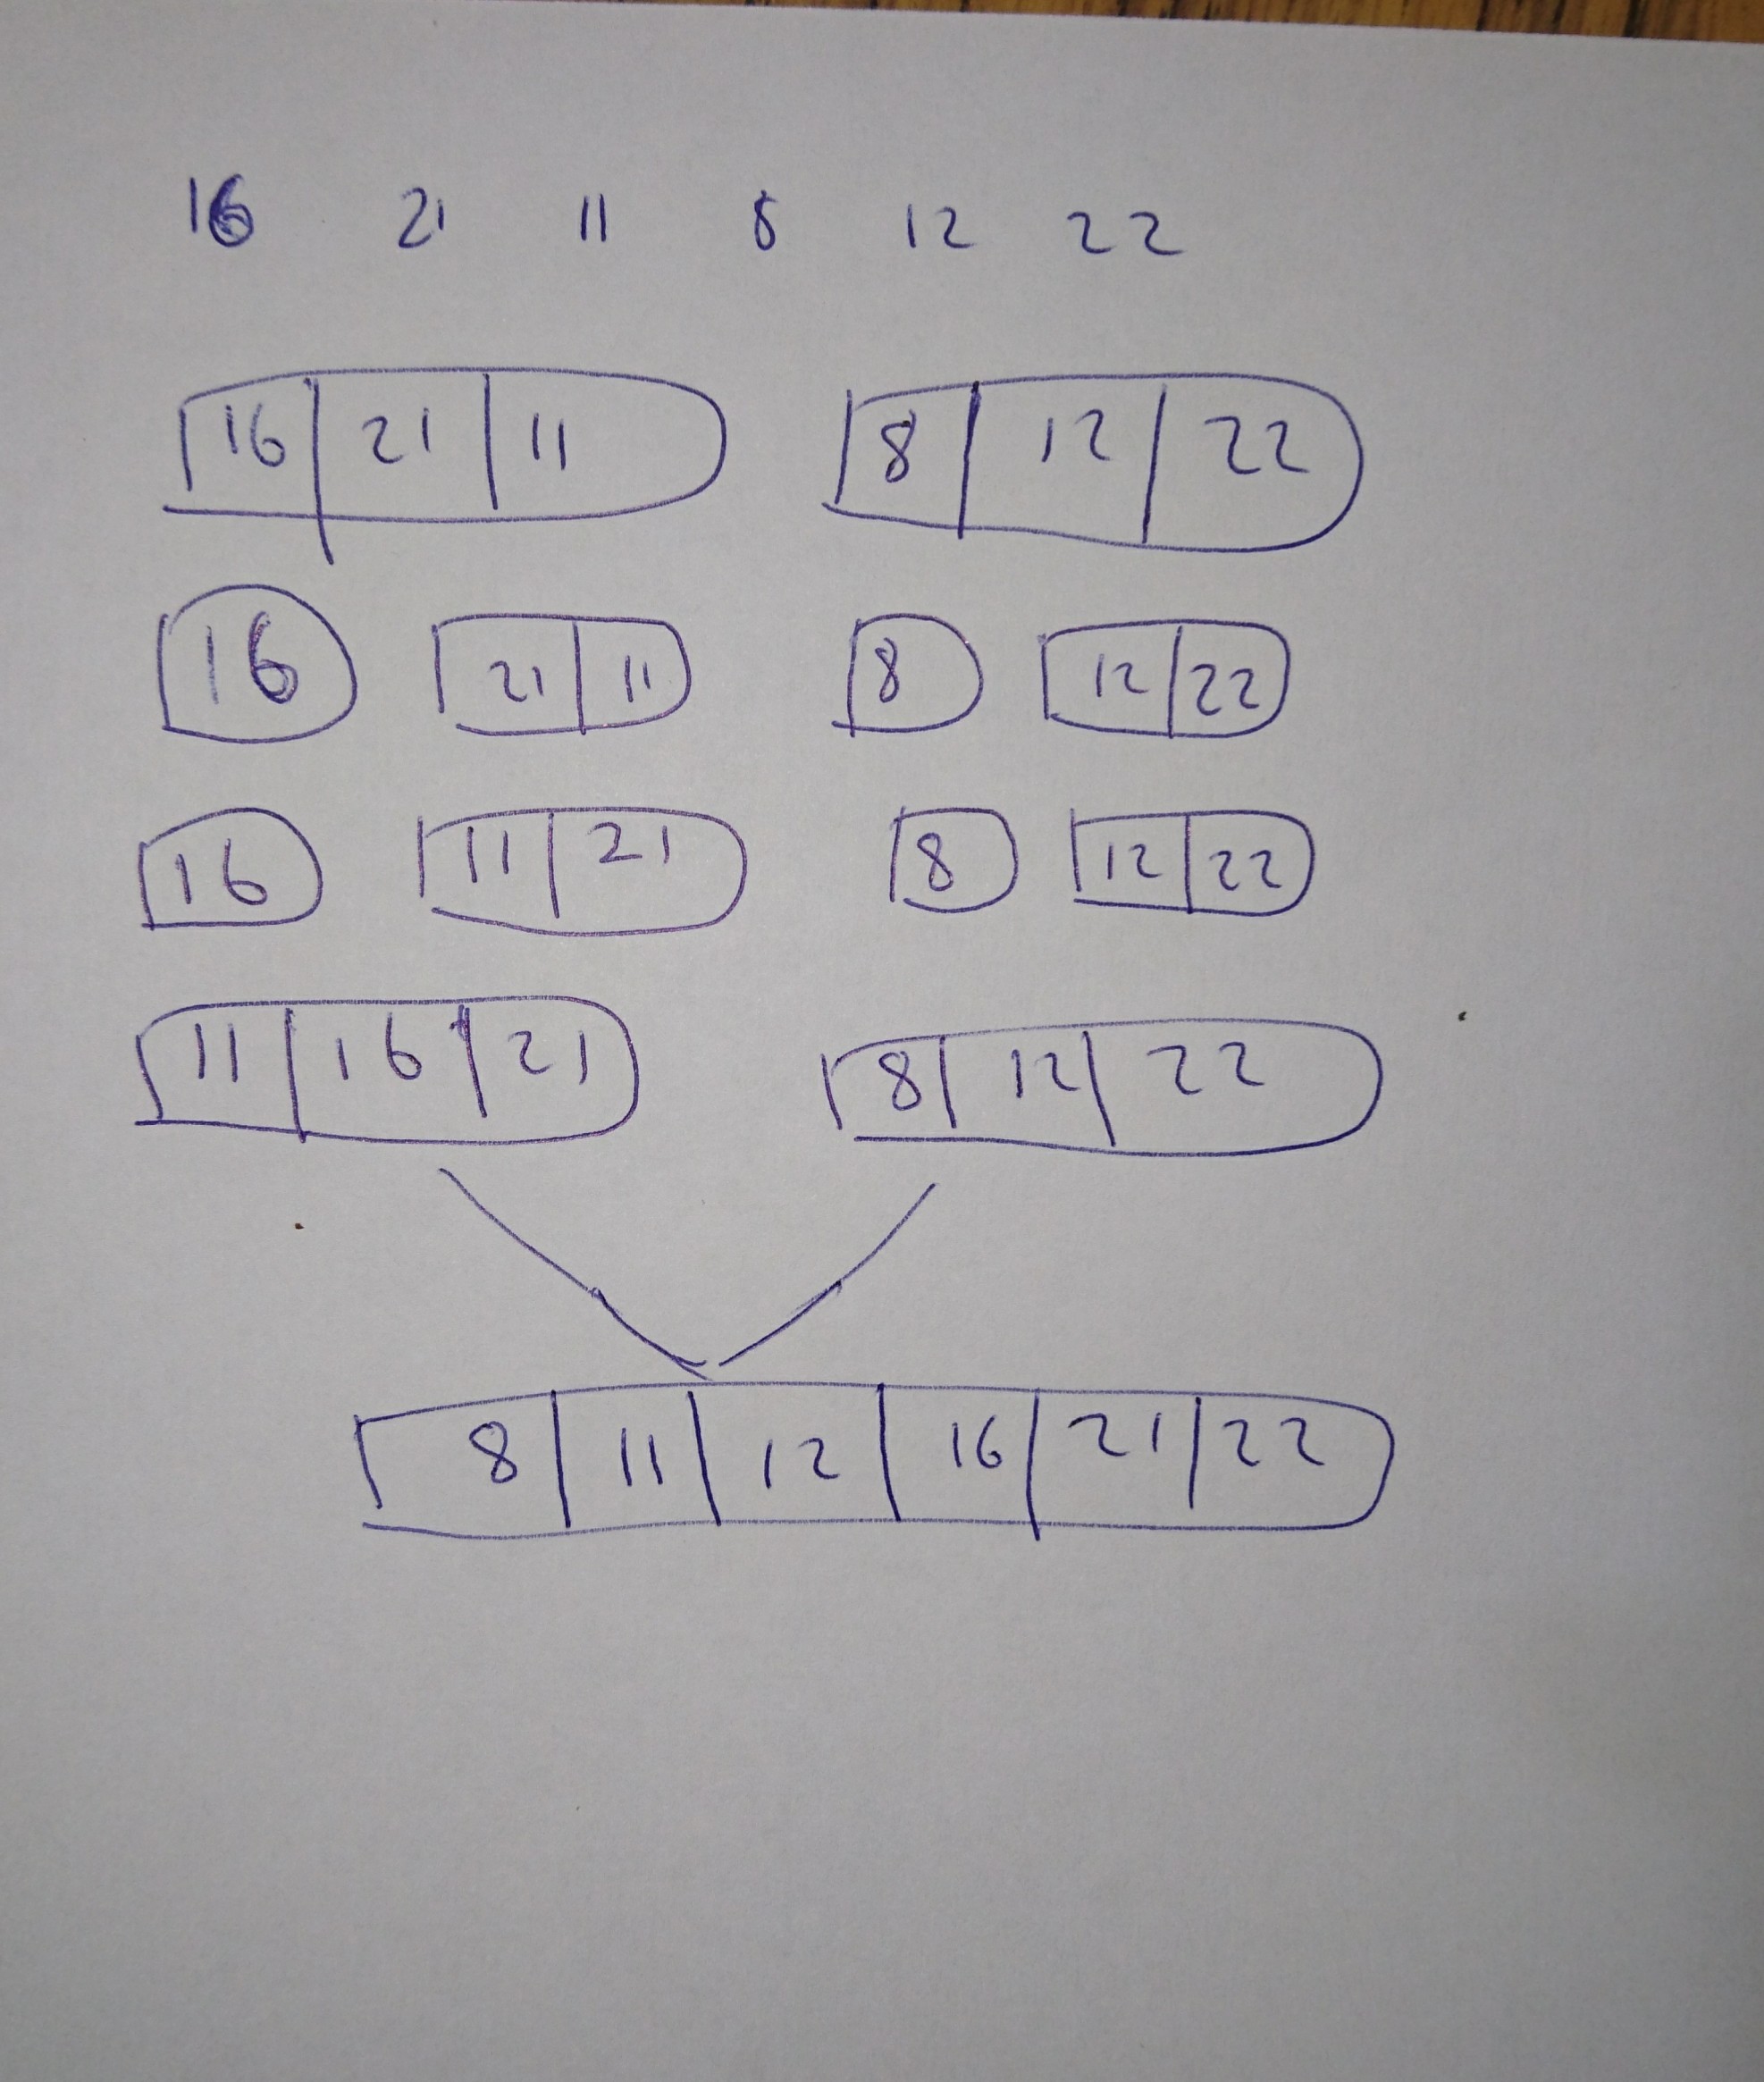 16 21 11 8 12 22
16 21 11 8 12 22
16 21 11 8 12 22
16 11 21 8 12 22
11 16 21 8 12 22
8 11 12 16 21 22